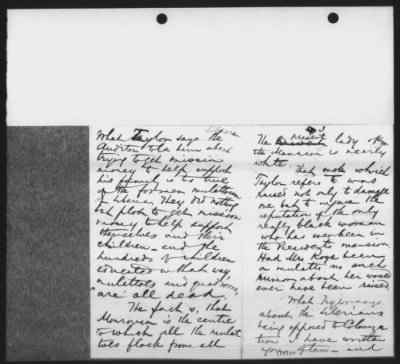 What Taylor says the
Auditor told him about
trying to get mission
money to help support
his family is too true
of the foremen mulattoes
in Liberia. They did nothing
but plot to get mission
money to help support
themselves and their
children, and the
hundreds of children
connected with that very
mulattoes and quadroons
are all dead.
The fact is, that
Monrovia is the centre
to which all the mulat
toes flock from all
3
The present lady of
the Mansion is nearly
white.
That mob which
Taylor refers to was
raised not only to damage
me but to injure the
reputation of the only
really black woman
who has ever been in
the President's mansion.
Had Mrs Roye been
a mulatto no such
rumor about her would
ever have been raised.
What Taylor says
about the Liberians
being opposed to Coloniza
tion I have written
you often and